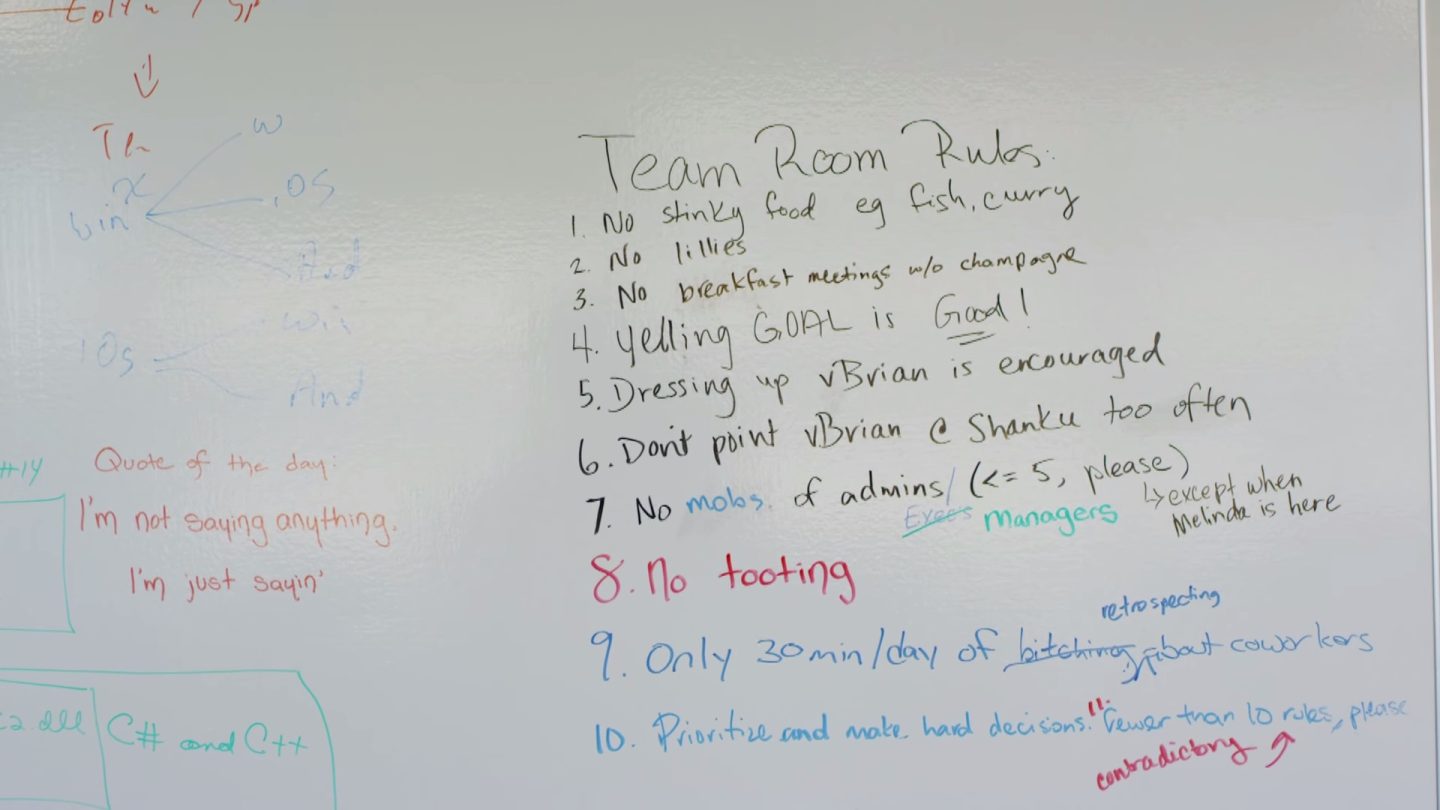 Team Room Rules:
1. No stinky food eg fish, curry
2. No lillies
3. No breakfast meetings w/o champagne
4. Yelling GOAL is Good!
5. Dressing up vBrian is encouraged
6. Don't point vBrian @ Shanku too often
7. No mobs of admins/ (<= 5, please)
Execs managers
↳ except when
Melinda is here
8. No tooting
retrospecting
9. Only 30min/day of bitching about coworkers
10. Prioritize and make hard decisions. 11. Fewer than 10 rules, please
contradictory
W
iOS
And
Win
iOS
Win
And
#14
Quote of the day:
I'm not saying anything.
I'm just sayin'
C# and C++